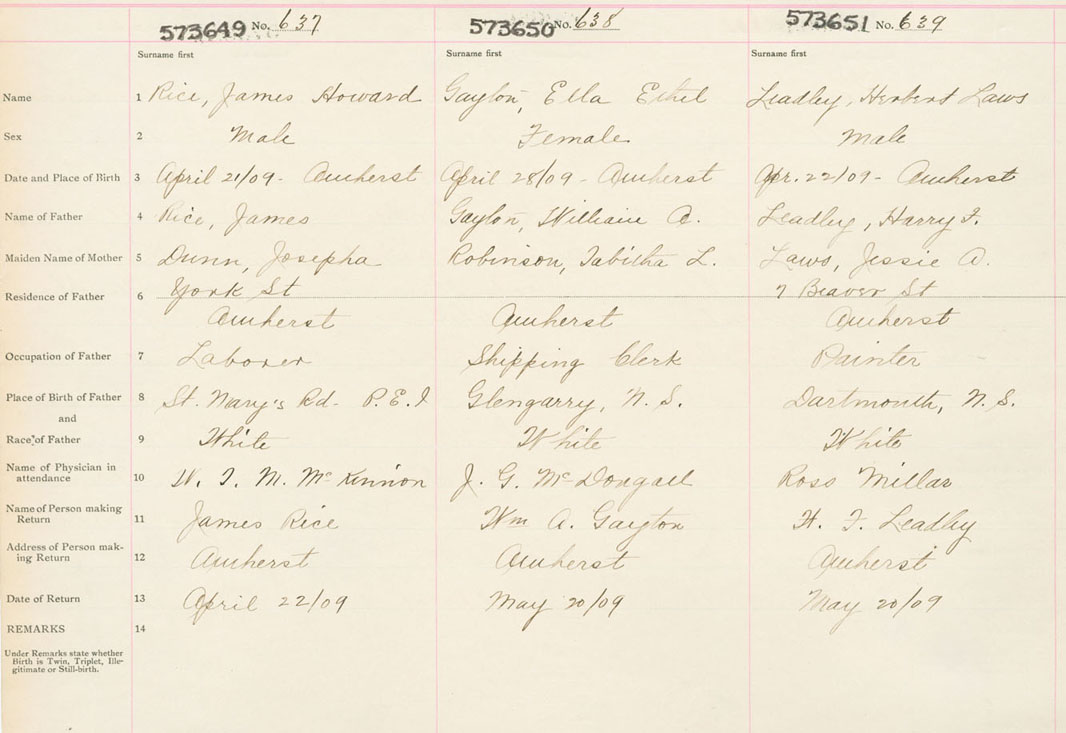 573649 No. 637 573650 No. 638 573651 No. 639
Surname first Surname first Surname first
Name 1 Rice, James Howard Gayton, Ella Ethel Leadley, Herbert Laws
Sex 2 Male Female Male
Date and Place of Birth 3 April 21/09 - Amherst April 28/09 - Amherst Apr. 22/09 - Amherst
Name of Father 4 Rice, James Gayton, William A. Leadley, Harry F.
Maiden Name of Mother 5 Dunn, Josepha Robinson, Tabitha L. Laws, Jessie A.
York St 7 Beaver St
Residence of Father 6
Amherst Amherst Amherst
Occupation of Father 7 Laborer Shipping Clerk Painter
Place of Birth of Father 8 St. Mary's Rd - P.E.I Glengarry, N.S. Dartmouth, N.S.
and
Race of Father 9 White White White
Name of Physician in
attendance 10 W. T. M. McKinnon J. G. McDougall Ross Millar
Name of Person making
Return 11 James Rice Wm A. Gayton H. F. Leadley
Address of Person mak-
ing Return 12 Amherst Amherst Amherst
Date of Return 13 April 22/09 May 20/09 May 20/09
REMARKS 14
Under Remarks state whether
Birth is Twin, Triplet, Ille-
gitimate or Still-birth.